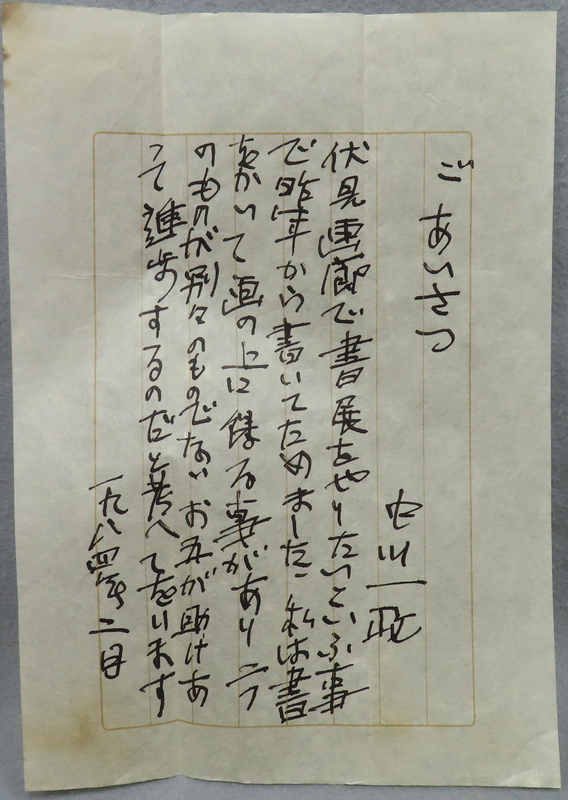 ごあいさつ
中川一政
伏見画廊で書展をやりたいといふ事
で昨年から書いてためました 私は書
をかいて画の上に得る事があり 二つ
のものが別々のものでないお互が助けあ
って進歩するのだと考へてをります
一九八四年二月